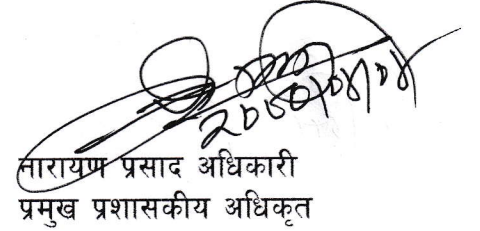 २०८०।०४।०४
नारायण प्रसाद अधिकारी
प्रमुख प्रशासकीय अधिकृत